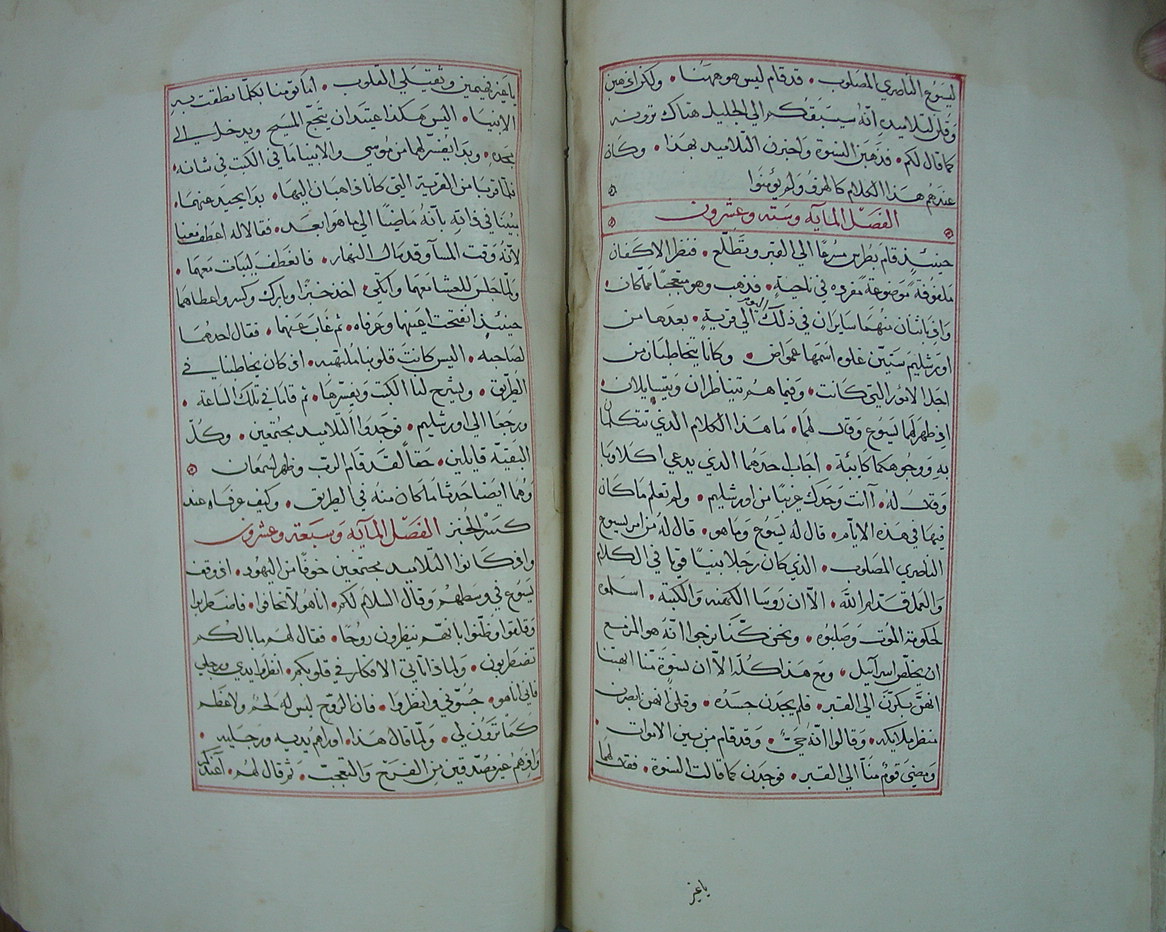 ليسوع الناصري المصلوب • قد قام ليس هو ههنا • ولكن اذهبن
وقلن لتلاميذه انه سيسبقكم الي الجليل هناك ترونه
كما قال لكم • فذهبن النسوة واخبرن التلاميذ بهذا • وكان
عندهم هذا الكلام كالهزؤ ولم يؤمنوا
الفصل المايه وسته وعشرون
حينيذ قام بطرس مسرعًا الي القبر وتطلع • فنظر الاكفان
ملفوفة موضوعة مفرده في ناحية • فذهب وهو متعجبًا مما كان •
واذ باثنان منهما سايران في ذلك اليوم الي قرية • بعدها من
اورشليم ستين غلوه اسمها عمواص • وكانا يتخاطبان من
اجل الامور التي كانت • وفيما هم يتناظران ويتسايلان •
اذ ظهر لهما يسوع وقال لهما • ما هذا الكلام الذي تتكلمان
به ووجوهكما كايبة • اجاب احدهما الذي يدعي اكلاوبا
وقال له • اانت وحدك غريبًا من اورشليم • ولم تعلم ما كان
فيها في هذه الايام • قال له يسوع وما هو • قال له من امر يسوع
الناصري المصلوب • الذي كان رجلا نبيًا قويا في الكلام
والعمل قدام الله • الا ان روسا الكهنة والكتبة • اسلموه
لحكومة الموت وصلبوه • ونحن كنا نرجوا انه هو المزمع
ان يخلص اسرآييل • ومع هذا كله الا ان نسوة منا اتهتنا
انهن بكرن الي القبر • فلم يجدن جسده • وقلن انهن ابصرن
منظر ملايكه • وقالوا انه حيّ • وقد قام من بين الاموات •
ومضي قوم منا الي القبر • فوجدن كما قالت النسوة • فقال لهما
ياغير
ياغير فهيمين وثقيلي القلوب • اما تومنا بكلما نطقت به
الانبيا • اليس هكذا عتيدا ان يتجع المسيح ويدخل الي
مجده • وبدا يفسر لهما من موسي والانبيا ما في الكتب في شانه •
فلما قربا من القرية التي كانا ذاهبان اليها • بدا يحيد عنهما •
مبينًا في ذاته بانه ماضيًا الي ما هو ابعد • فقالا له اعطف معنا
لانه وقت المسآ وقد مال النهار • فانعطف ليبات معهما •
ولما جلس للعشا معهما واتكي • اخذ خبزًا وبارك وكسر واعطاهما
حينيذ انفتحت اعينهما وعرفاه • ثم غاب عنهما • فقال احدهما
لصاحبه • اليس كانت قلوبنا ملتهبه • اذ كان يخاطبنا في
الطريق • ويشرح لنا الكتب ويفسرها • ثم قاما في تلك الساعة •
ورجعا الي اورشليم • فوجدوا التلاميذ مجتمعين • وكل
البقية قايلين • حقًا لقد قام الرب وظهر لسمعان
وهما ايضا حدثا ما كان منه في الطريق • وكيف عرفاه عند
كسر الخبز الفصل المايه وسبعة وعشرون
واذ كانوا التلاميذ مجتمعين خوفًا من اليهود • اذ وقف
يسوع في وسطهم وقال السلام لكم • انا هو لا تخافوا • فاضطربوا
وقلقوا وظنوا بانهم ينظرون روحًا • فقال لهم ما بالكم
تضطربون • ولماذا تاتي الافكار في قلوبكم • انظروا يدي ورجلي
فاني انا هو • جسّوني وانظروا • فان الروح ليس له لحم ولا عظم
كما ترون لي • ولما قال هذا • اوراهم يديه ورجليه •
واذ هم غير مصدقين من الفرح والتعجب • ثم قال لهم • اعندكم